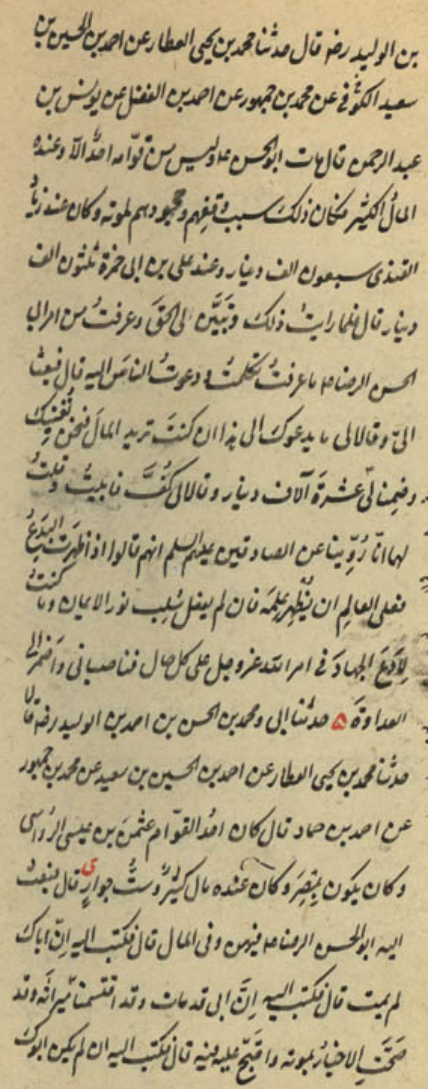 بن الوليد رضه قال حدثنا محمد بن يحيى العطار عن احمد بن الحسين بن
سعيد الكوفي عن محمد بن جمهور عن احمد بن الفضل عن يونس بن
عبد الرحمن قال مات ابو الحسن ع وليس من قوّامه احدٌ الّا وعنده
المالُ الكثير فكان ذلك سبب وقفهم وجحودهم لموته وكان عند زياد
القندى سبعون الف دينار وعند على بن ابى حمزة ثلثون الف
دينار قال فلما رايتُ ذلك وتبيّن لى الحقّ وعرفتُ من امر ابا
الحسن الرضا ع ما عرفتُ تكلمتُ ودعوتُ الناسَ اليه قال فبعثا
الىّ وقالا لى ما يدعوك الى هذا ان كنتَ تريد المالَ فنحن نُغنيك
وضمنا لى عشرةَ آلاف دينار وقالا لى كُفَّ فابيتُ وقلتُ
لهما انّا رُوّينا عن الصادقين عليهم السلم انهم قالوا اذا ظهرت البدَعُ
فعلى العالِم ان يُظهِر علِمَه فان لم يفعل سُلِب نور الايمان وما كنتُ
لِاَدَعَ الجهادَ فى امر الله عز وجل على كل حال فناصبانى واضمرا لى
العداوةَ ۵ حدثنا ابى ومحمد بن الحسن بن احمد بن الوليد رضه قالا
حدثنا محمد بن يحيى العطار عن احمد بن الحسين بن سعيد عن محمد بن جمهور
عن احمد بن حماد قال كان احدُ القوّام عثمنَ بن عيسى الرُّواسى
وكان يكون بمِصرَ وكان عنده مال كثيرٌ وستُّ جوارى قال فبعث
اليه ابو الحسن الرضا ع فيهن وفى المال قال فكتب اليه انّ اباك
لم يمت قال فكتب اليه اِنَّ ابى قد مات وقد اقتسمنا ميراثه وقد
صَحَّتِ الاخبارُ بموته واحتجّ عليه فيه قال فكتب اليه ان لم يكن ابوك